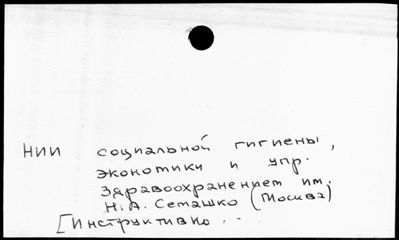 НИИ социальной гигиены,
экономики и упр.
здравоохранением им.
Н.А. Семашко (Москва)
[Инструктивно...